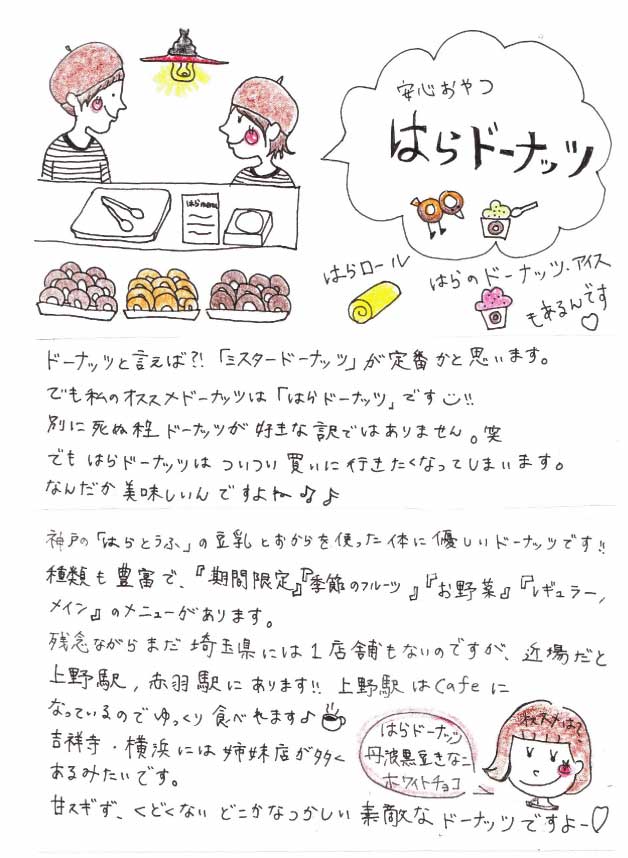 安心おやつ
はらドーナッツ
はらmenu
はらロール
はらのドーナッツ・アイス
もあるんです♡
ドーナッツと言えば?!「ミスタードーナッツ」が定番かと思います。
でも私のオススメドーナッツは「はらドーナッツ」です!!
別に死ぬ程ドーナッツが好きな訳ではありません。笑
でもはらドーナッツはついつい買いに行きたくなってしまいます。
なんだか美味しいんですよね♪♪
神戸の「はらとうふ」の豆乳とおからを使った体に優しいドーナッツです!!
種類も豊富で、『期間限定』『季節のフルーツ』『お野菜』『レギュラー,
メイン』のメニューがあります。
残念ながらまだ埼玉県には1店舗もないのですが、近場だと
上野駅,赤羽駅にあります!! 上野駅はCafeに
なっているのでゆっくり食べれます♪
吉祥寺・横浜には姉妹店が多く
あるみたいです。
甘スギず、くどくないどこかなつかしい素敵なドーナッツですよー♡
オススメはコレ
はらドーナッツ
丹波黒豆きなこ
ホワイトチョコ